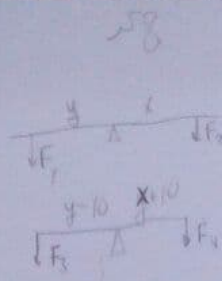 58
y x
F₁ F₂
y-10 x+10
F₃ F₄